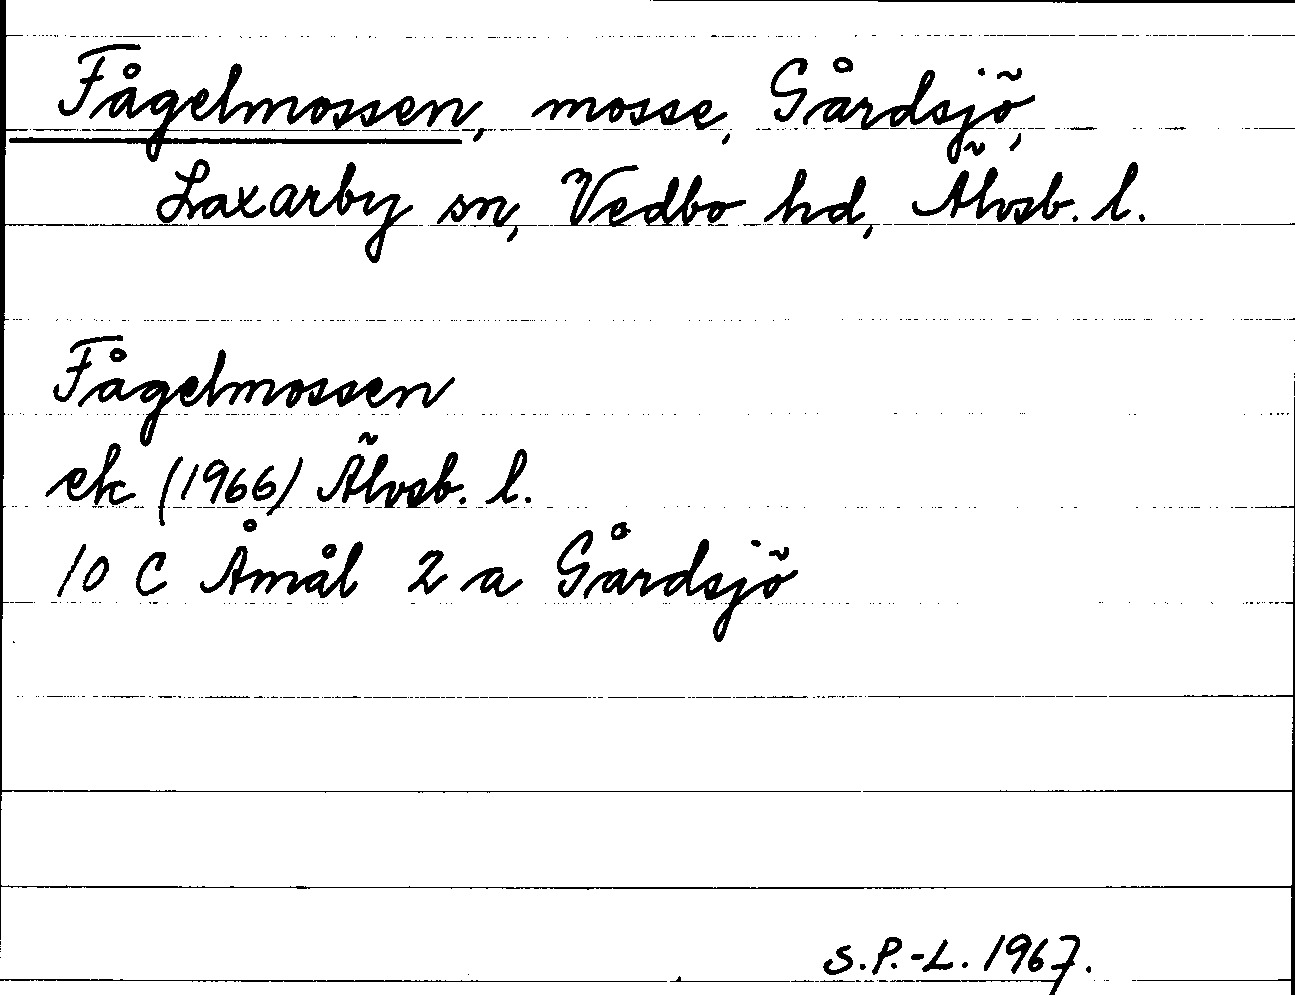 Fågelmossen, mosse, Gårdsjö,
Laxarby sn, Vedbo hd, Älvsb. l.
Fågelmossen
ek (1966) Älvsb. l.
10 C Åmål 2 a Gårdsjö
S.P.-L. 1967.